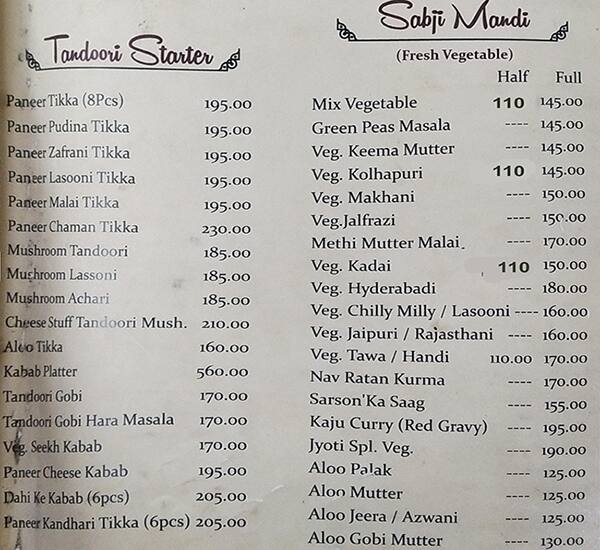 Tandoori Starter
Paneer Tikka (8Pcs) 195.00
Paneer Pudina Tikka 195.00
Paneer Zafrani Tikka 195.00
Paneer Lasooni Tikka 195.00
Paneer Malai Tikka 195.00
Paneer Chaman Tikka 230.00
Mushroom Tandoori 185.00
Mushroom Lassoni 185.00
Mushroom Achari 185.00
Cheese Stuff Tandoori Mush. 210.00
Aloo Tikka 160.00
Kabab Platter 560.00
Tandoori Gobi 170.00
Tandoori Gobi Hara Masala 170.00
Veg. Seekh Kabab 170.00
Paneer Cheese Kabab 195.00
Dahi Ke Kabab (6pcs) 205.00
Paneer Kandhari Tikka (6pcs) 205.00
Sabji Mandi
(Fresh Vegetable)
Half Full
Mix Vegetable 110 145.00
Green Peas Masala ---- 145.00
Veg. Keema Mutter ---- 145.00
Veg. Kolhapuri 110 145.00
Veg. Makhani ---- 150.00
Veg.Jalfrazi ---- 150.00
Methi Mutter Malai. ---- 170.00
Veg. Kadai 110 150.00
Veg. Hyderabadi ---- 180.00
Veg. Chilly Milly / Lasooni ---- 160.00
Veg. Jaipuri / Rajasthani ---- 160.00
Veg. Tawa / Handi 110.00 170.00
Nav Ratan Kurma ---- 170.00
Sarson'Ka Saag ---- 155.00
Kaju Curry (Red Gravy) ---- 195.00
Jyoti Spl. Veg. ---- 190.00
Aloo Palak ---- 125.00
Aloo Mutter ---- 125.00
Aloo Jeera / Azwani ---- 125.00
Aloo Gobi Mutter ---- 130.00